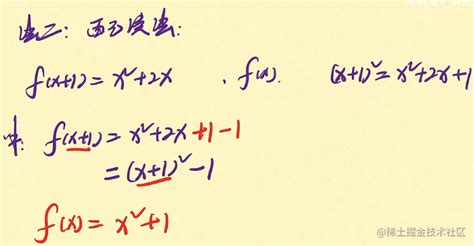 法二：配凑法：
f(x+1)=x²+2x , f(x). (x+1)²=x²+2x+1
f(x+1)=x²+2x+1-1
=(x+1)²-1
f(x)=x²+1
@稀土掘金技术社区